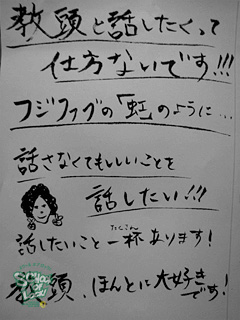 教頭と話したくって
仕方ないです!!!
フジファブの「虹」のように…
話さなくてもいいことを
話したい!!!
話したいこと一杯あります!
たくさん
教頭、ほんとに大好き
です!